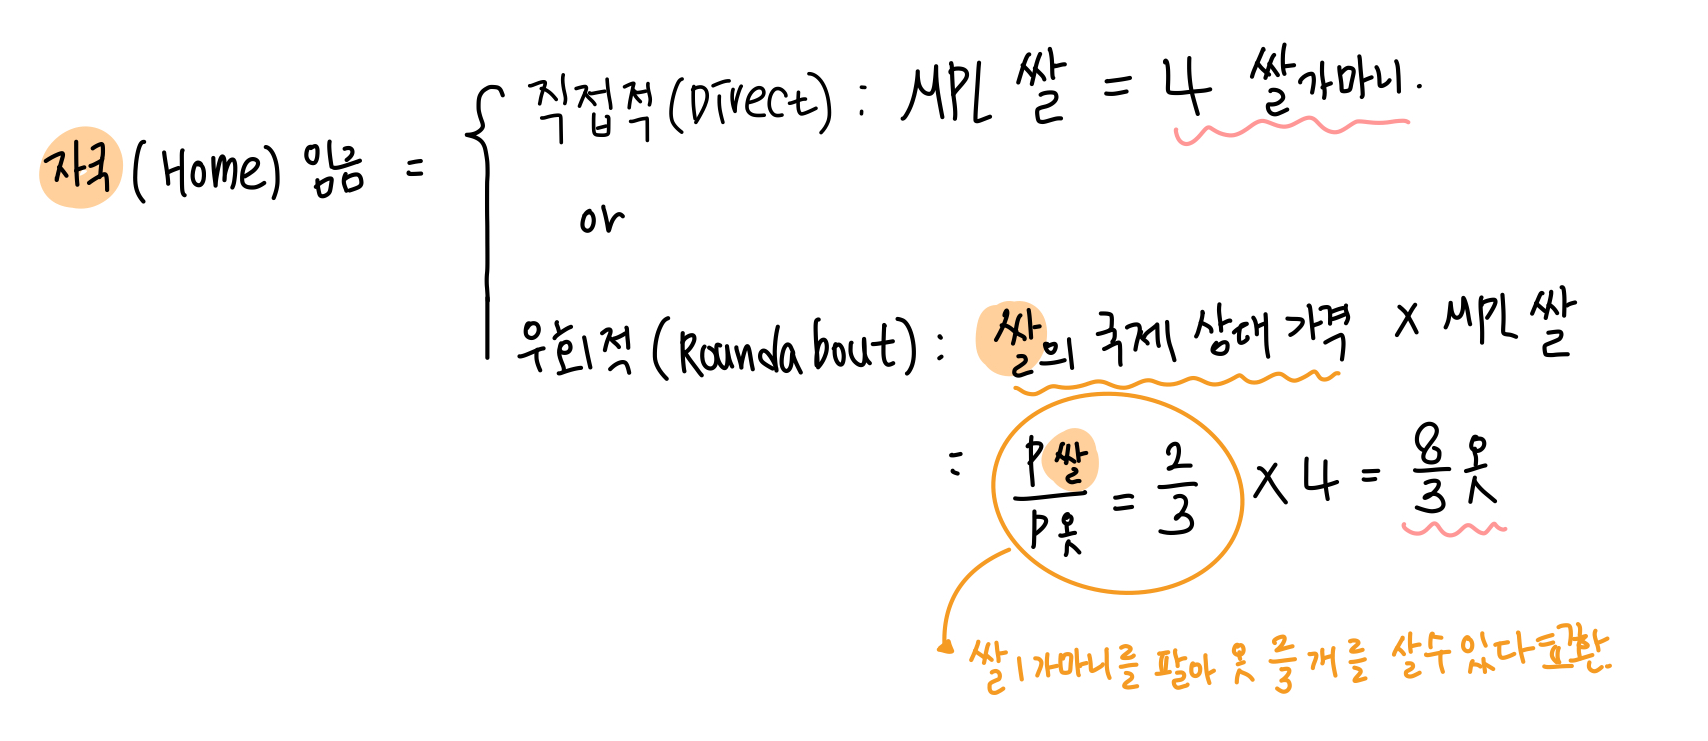 자국 (Home) 임금 = 직접적 (Direct) : MPL 쌀 = 4 쌀가마니.
or
우회적 (Roundabout) : 쌀의 국제 상대가격 × MPL 쌀
= P쌀/P옷 = 2/3 × 4 = 8/3 옷
쌀 1 가마니를 팔아 옷 2/3 개를 살 수 있다